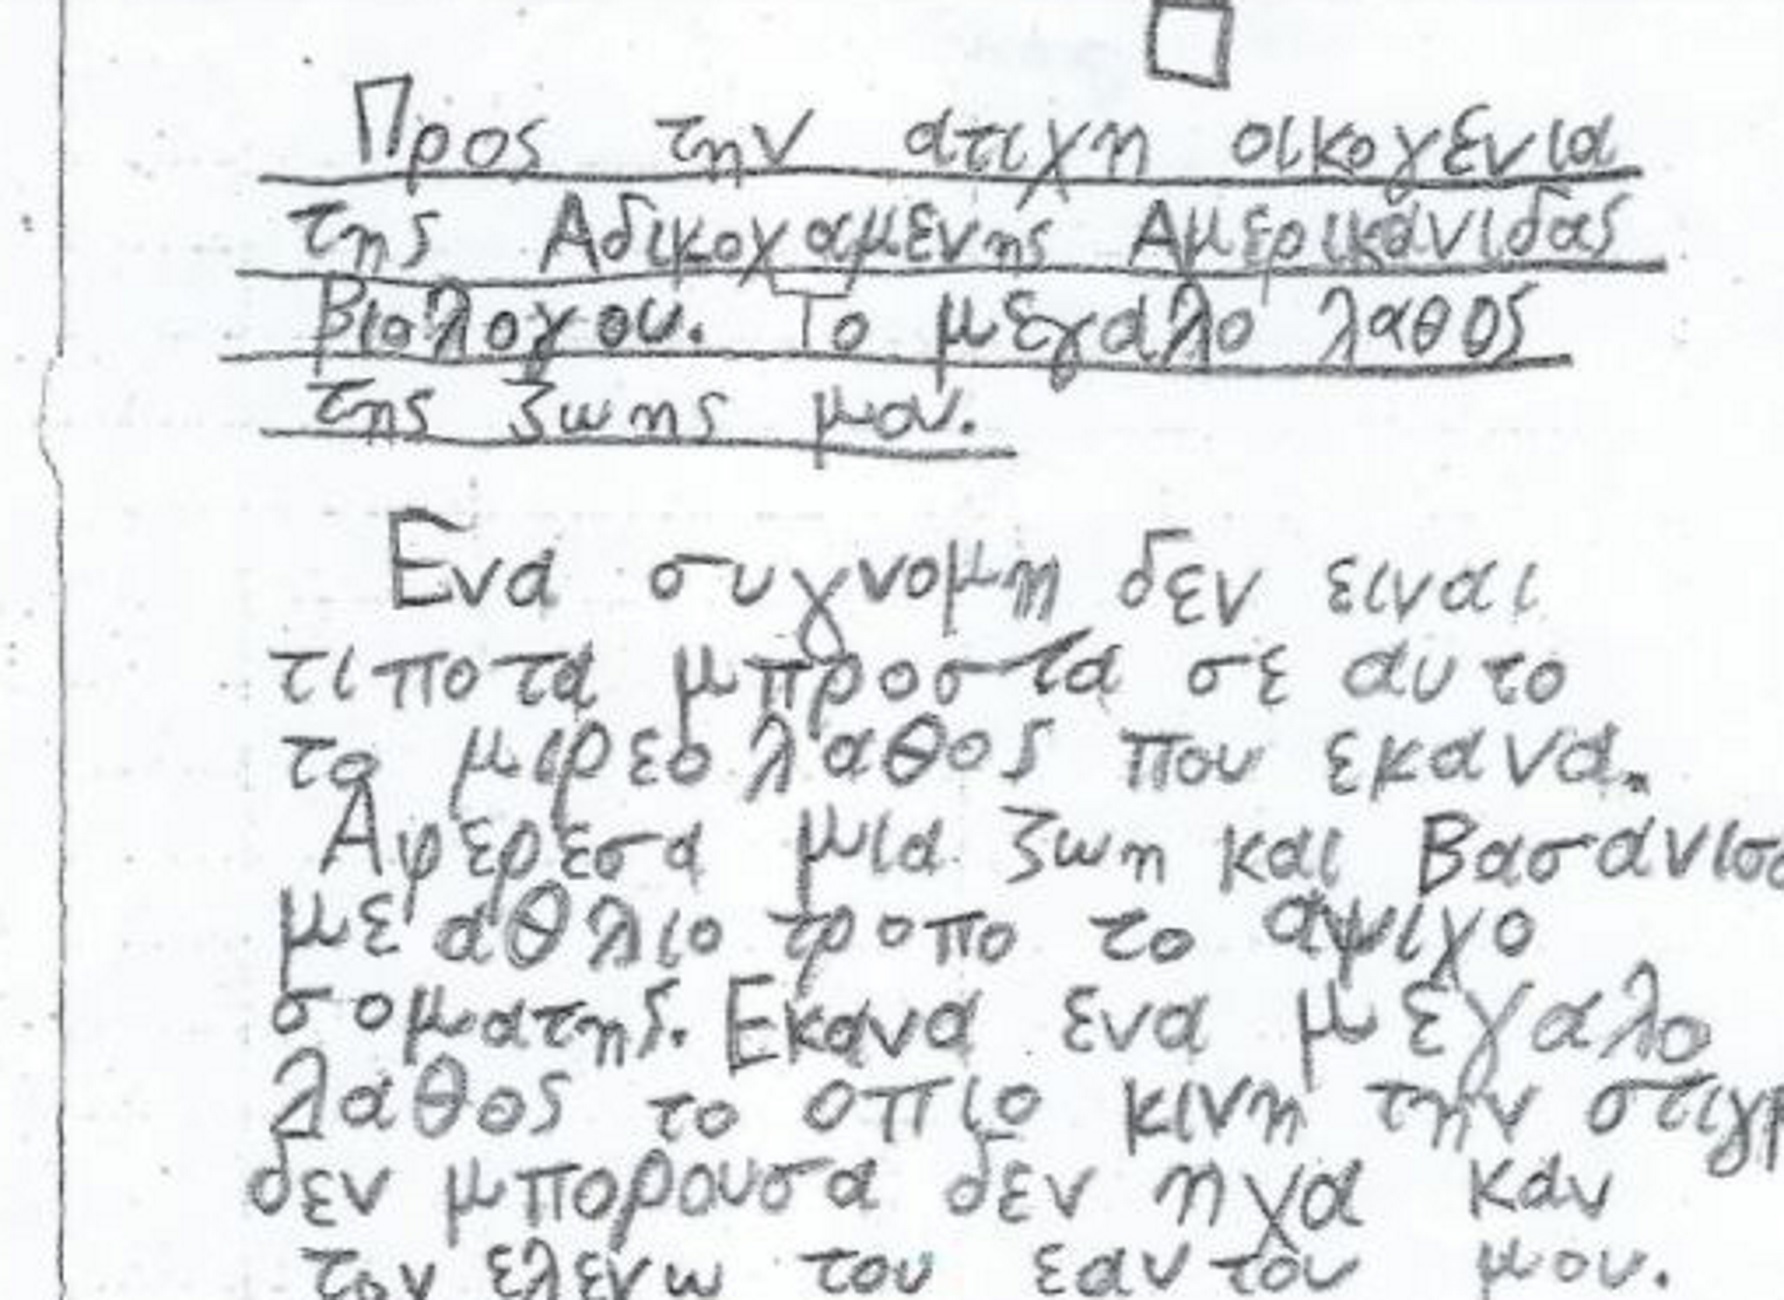 Προς την ατιχη οικογενια
της Αδικοχαμενης Αμερικανιδας
Βιολογου. Το μεγαλο λαθος
της ζωης μου.
Ενα συγνομη δεν ειναι
τιποτα μπροστα σε αυτο
το μιρεο λαθος που εκανα.
Αφερεσα μια ζωη και Βασανισα
με αθλιο τροπο το αψιχο
σοματης. Εκανα ενα μεγαλο
λαθος το οπιο κινη την στιγμ
δεν μπορουσα δεν ηχα καν
τον ελενχω του εαυτου μου.